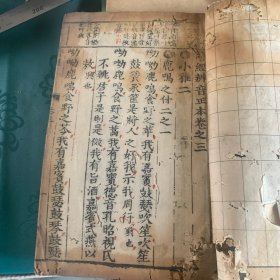 經辨音正本卷之三
小雅二
鹿鳴之什二之一
呦呦鹿鳴食野之苹我有嘉賓鼓瑟吹笙吹笙
鼓簧承筐是將人之好我示我周行興也
呦呦鹿鳴食野之蒿我有嘉賓德音孔昭視民
不恌君子是則是傚我有旨酒嘉賓式燕以
敖興也
呦呦鹿鳴食野之芩我有嘉賓鼓瑟鼓琴鼓瑟